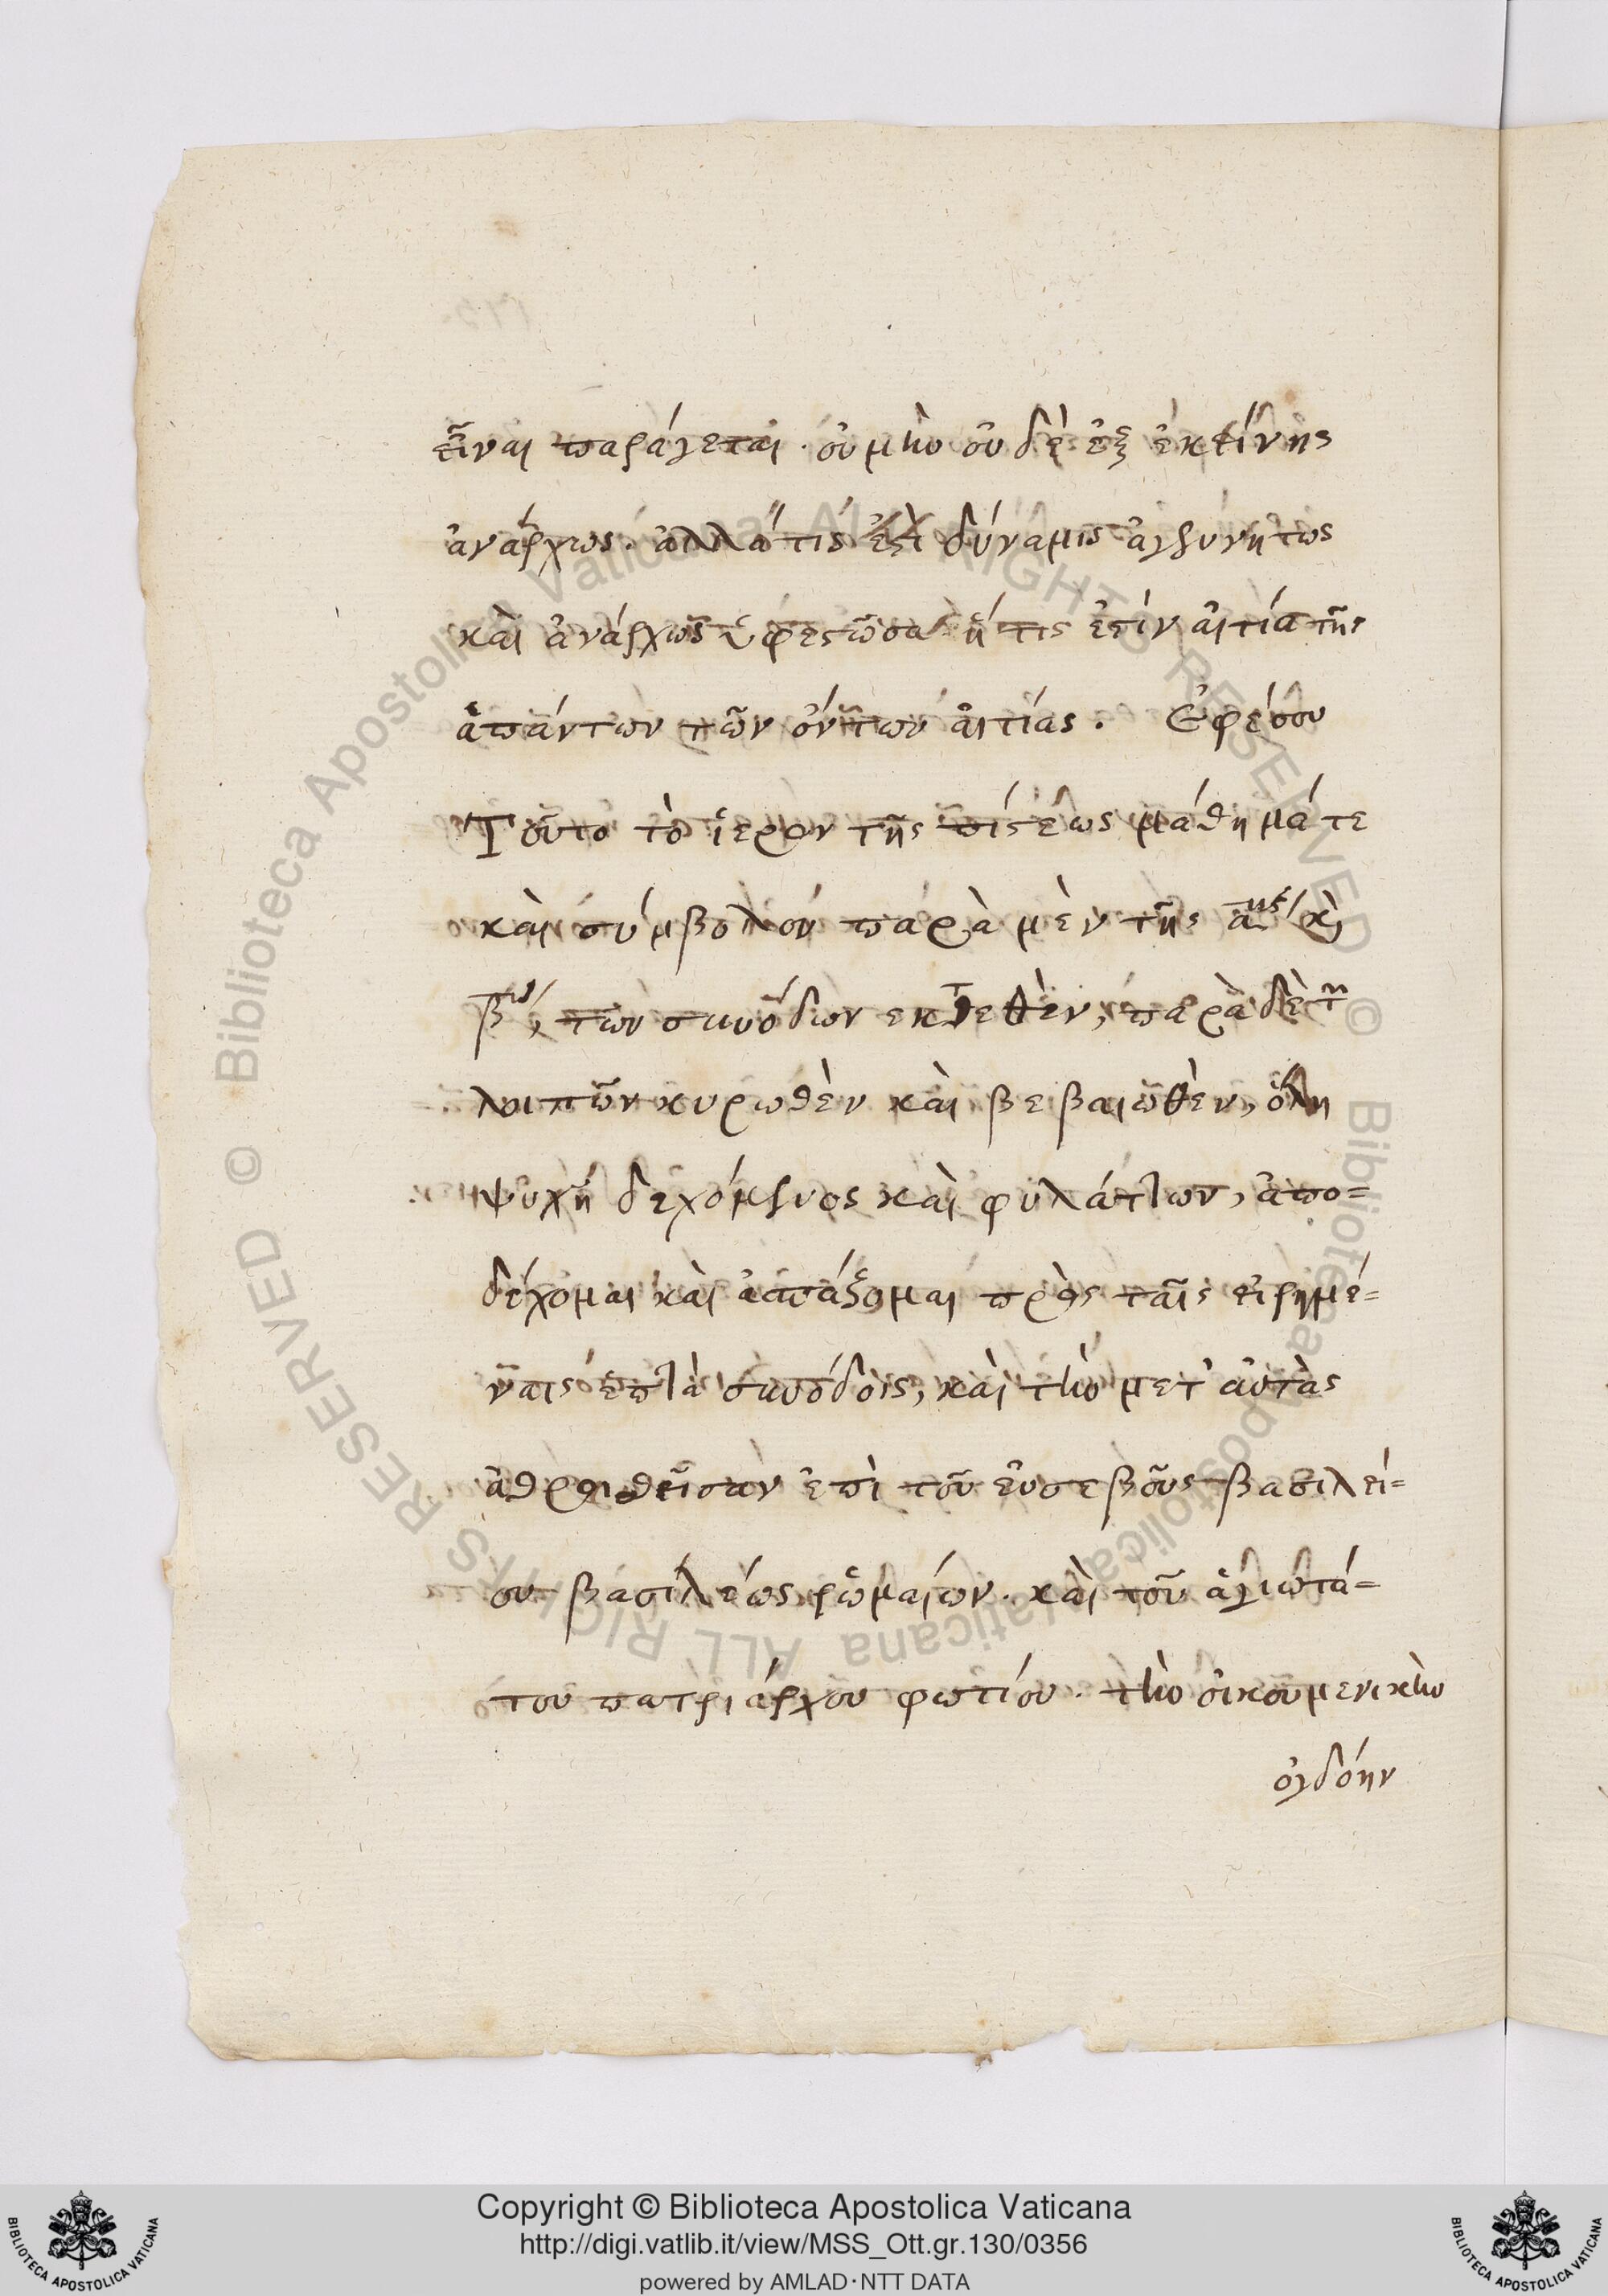 εἶναι παράγεται· οὐ μὴν οὐ δὲ ἐξ ἐκείνης
ἀνάρχως. ἀλλά τίς ἐστὶ δύναμις ἀγεννήτως
καὶ ἀνάρχως ὑφεστῶσα ἥ τις ἐστὶν αἰτία τῆς
ἁπάντων τῶν ὄντων αἰτίας. Ἐφέσου
Τοῦτο τὸ ἱερὸν τῆς πίστεως μάθημά τε
καὶ σύμβολον παρὰ μὲν τῆς αης καὶ
βας, τῶν συνόδων εκτεθὲν, παρὰ δὲ τῶν
λοιπῶν κυρωθὲν καὶ βεβαιωθὲν, ὅλη
ψυχῇ δεχόμενος καὶ φυλάττων, ἀπο=
δέχομαι καὶ ἀσπάζομαι πρὸς ταῖς εἰρημέ=
ναις ἑπτὰ συνόδοις, καὶ τὴν μετ' αὐτὰς
ἀθροισθεῖσαν ἐπὶ τοῦ εὐσεβοῦς βασιλεί=
ου βασιλέως ῥωμαίων. καὶ τοῦ ἁγιωτά=
του πατριάρχου φωτίου. τὴν οἰκουμενικὴν
ὀγδόην
Copyright © Biblioteca Apostolica Vaticana
http://digi.vatlib.it/view/MSS_Ott.gr.130/0356
powered by AMLAD·NTT DATA
© Biblioteca Apostolica Vaticana ALL RIGHTS RESERVED
© Biblioteca Apostolica Vaticana ALL RIGHTS RESERVED
BIBLIOTECA APOSTOLICA VATICANA
BIBLIOTECA APOSTOLICA VATICANA